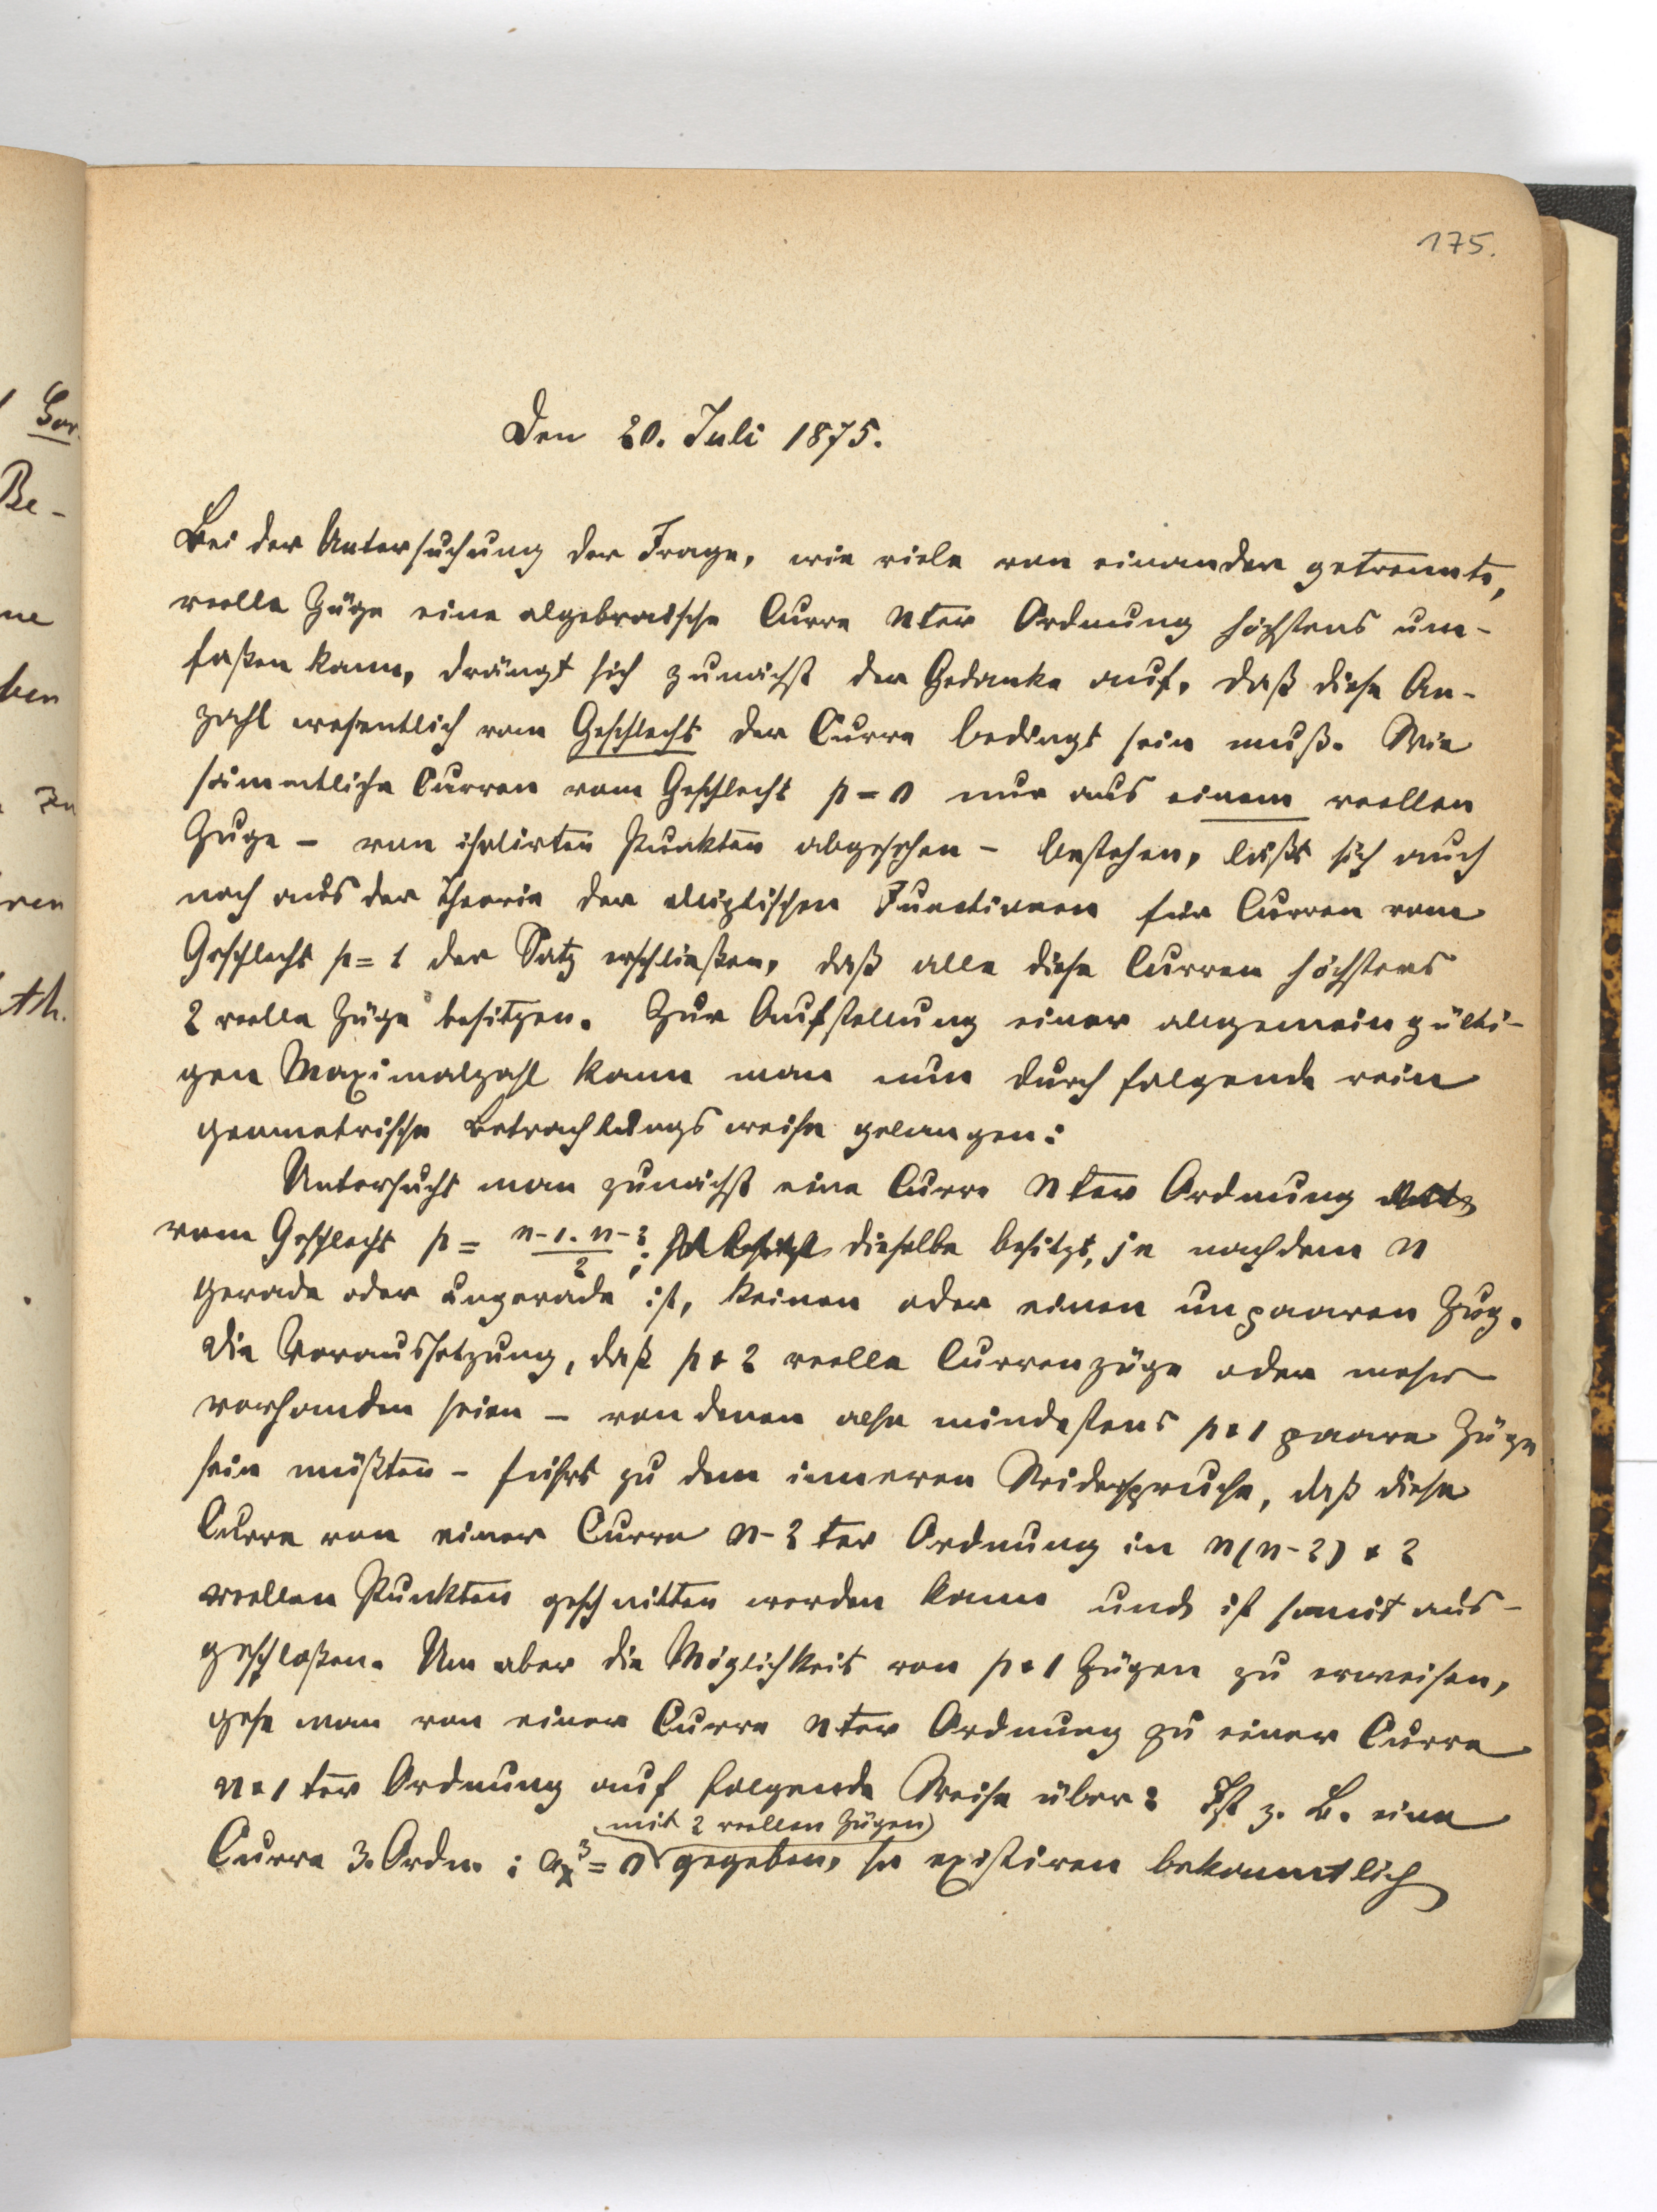 175.
Den 20. Juli 1875.
Bei der Untersuchung der Frage, wie viele von einander getrennte,
reelle Züge eine algebraische Curve nter Ordnung höchstens um-
faßen kann, drängt sich zunächst der Gedanke auf, daß diese An-
zahl wesentlich vom Geschlecht der Curve bedingt sein muß. Wie
sämmtliche Curven vom Geschlecht p = 0 nur aus einem reellen
Zuge – von isolirten Punkten abgesehen – bestehen, läßt sich auch
noch aus der Theorie der elliptischen Functionen für Curven vom
Geschlecht p = 1 der Satz erschließen, daß alle diese Curven höchstens
2 reelle Züge besitzen. Zur Aufstellung einer allgemein gülti-
gen Maximalzahl kann man nun durch folgende rein
geometrische Betrachtungsweise gelangen:
Untersucht man zunächst eine Curve nter Ordnung
vom Geschlecht p = n-1. n-2 / 2; dieselbe besitzt, je nachdem n
gerade oder ungerade ist, keinen oder einen unpaaren Zug.
Die Voraussetzung, daß p + 2 reelle Curvenzüge oder mehr
vorhanden seien – von denen also mindestens p + 1 paare Züge
sein müßten – führt zu dem inneren Widerspruche, daß diese
Curve von einer Curve n-2 ter Ordnung in n(n-2) + 2
reellen Punkten geschnitten werden kann und ist somit aus-
geschloßen. Um aber die Möglichkeit von p + 1 Zügen zu erweisen,
gehe man von einer Curve nter Ordnung zu einer Curve
n + 1 ter Ordnung auf folgende Weise über: Ist z. B. eine
mit 2 reellen Zügen
Curve 3. Ordn. : a_x^3 = 0 gegeben, so existiren bekanntlich
Be-
ne
ben
Zu
ren
th.